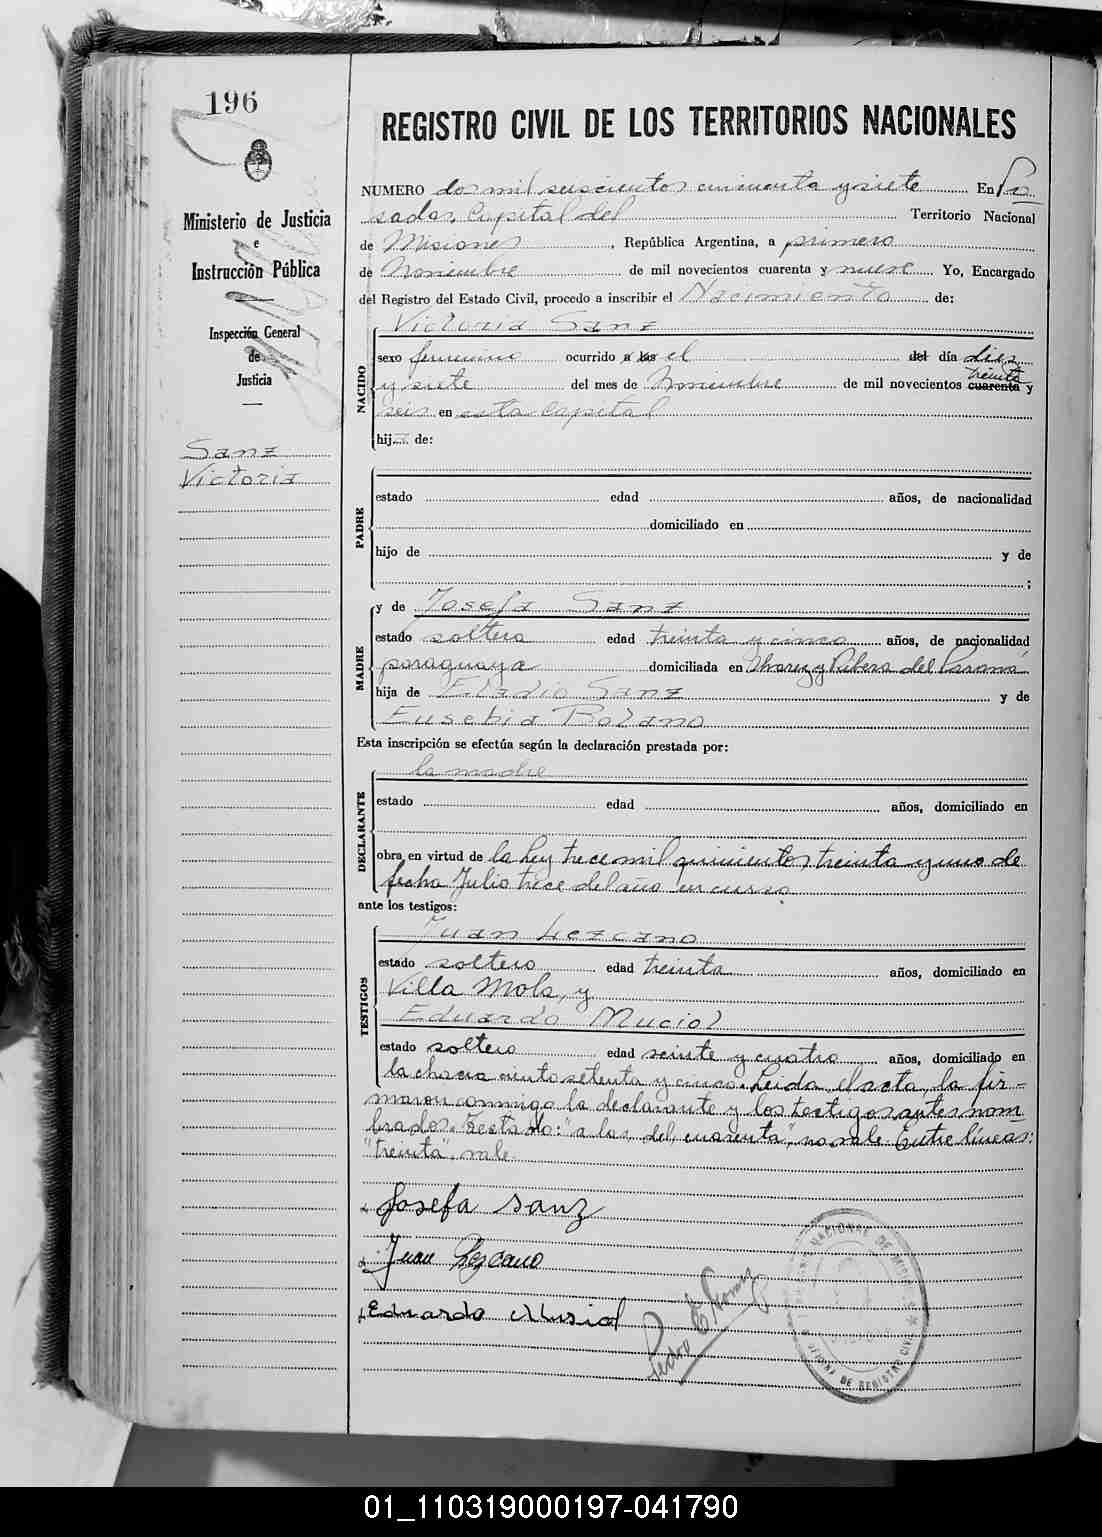 196
REGISTRO CIVIL DE LOS TERRITORIOS NACIONALES
Ministerio de Justicia
e
Instrucción Pública
Inspección General
de
Justicia
Sanz
Victoria
NUMERO dos mil seiscientos cincuenta y siete En Po
sadas, Capital del Territorio Nacional
de Misiones, República Argentina, a primero
de Noviembre de mil novecientos cuarenta y nueve Yo, Encargado
del Registro del Estado Civil, procedo a inscribir el Nacimiento de:
NACIDO
Victoria Sanz
sexo femenino ocurrido a las el del día diez
treinta
y siete del mes de Noviembre de mil novecientos cuarenta y
seis en esta Capital
hija de:
PADRE
estado edad años, de nacionalidad
domiciliado en
hijo de y de
;
MADRE
y de Josefa Sanz
estado soltera edad treinta y cinco años, de nacionalidad
paraguaya domiciliada en y Ribera del Paraná
hija de Eladio Sanz y de
Eusebia
Esta inscripción se efectúa según la declaración prestada por:
DECLARANTE
la madre
estado edad años, domiciliado en
obra en virtud de la Ley trece mil quinientos treinta y uno de
fecha Julio trece del año en curso
ante los testigos:
TESTIGOS
Juan Lezcano
estado soltero edad treinta años, domiciliado en
Villa Mola, y
Eduardo Muciol
estado soltero edad veinte y cuatro años, domiciliado en
la chacra ciento setenta y cinco. Leida el acta, la fir-
maron conmigo la declarante y los testigos antes nom
brados. Testado: "a las, del, cuarenta", no vale. Entre líneas:
"treinta", vale.
Josefa Sanz
Juan Lezcano
Eduardo Musiol
Pedro E.
NACIONAL DE MISIONES
OFICINA DE REGISTRO CIVIL
01_110319000197-041790